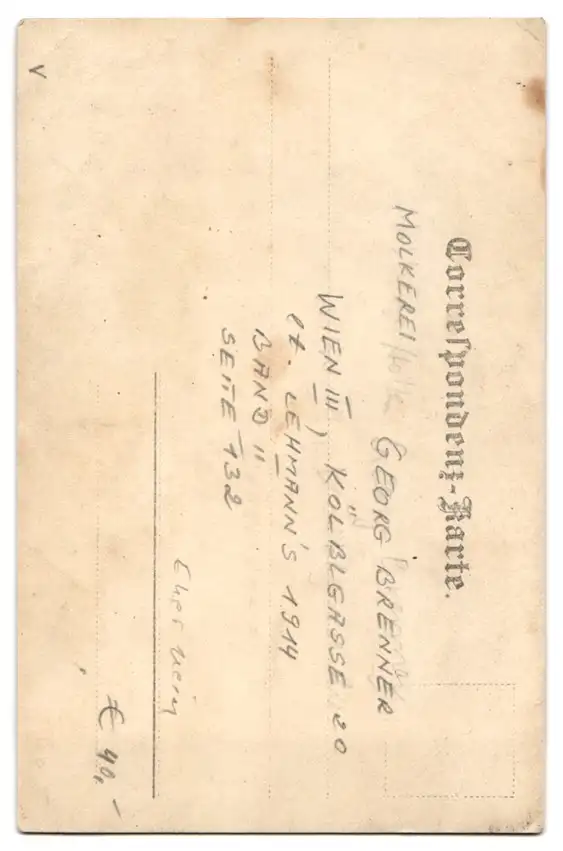 Correspondenz-Karte.
MOLKEREI GEORG BRENNER
WIEN III, KÖLBLGASSE 20
lt. LEHMANN'S 1914
BAND II
SEITE 132
Eher nein
€ 40,-
V